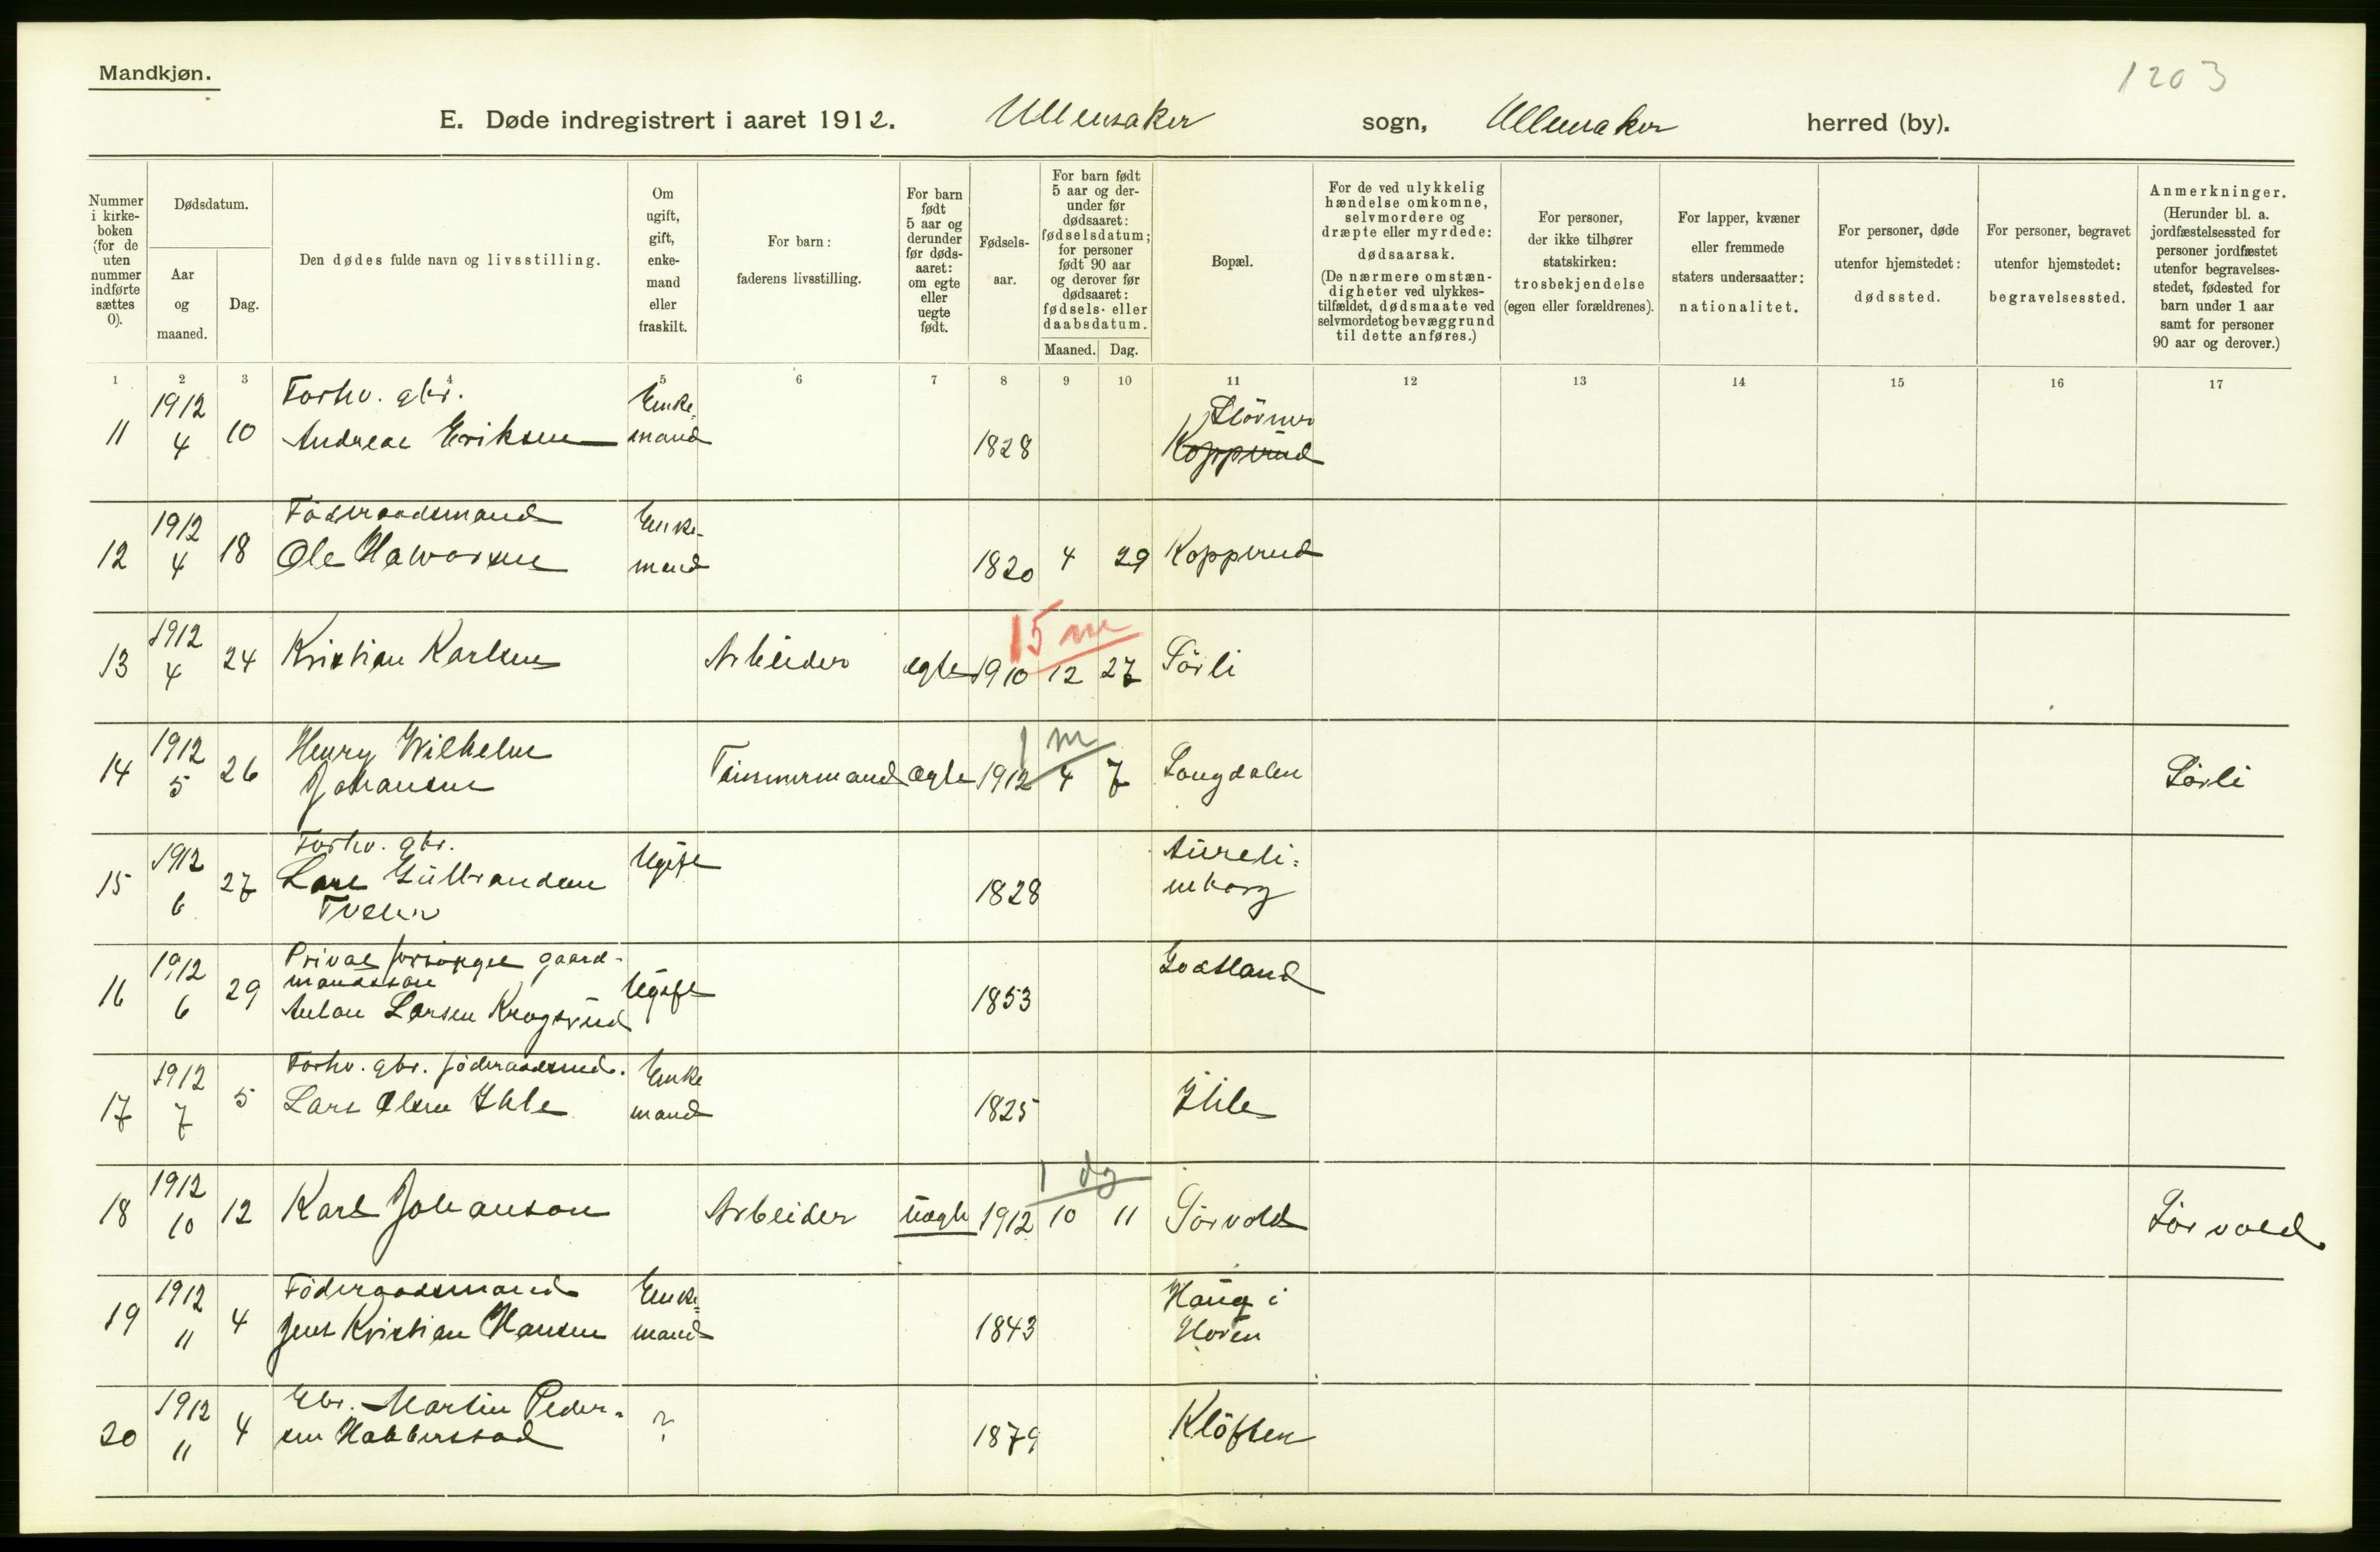 Mandkjøn.
1203
E. Døde indregistrert i aaret 1912. Ullensaker sogn, Ullensaker herred (by).
Nummer i kirke-boken (for de uten nummer indførte sættes 0).
Dødsdatum.
Aar og maaned.
Dag.
Den dødes fulde navn og livsstilling.
Om ugift, gift, enke-mand eller fraskilt.
For barn: faderens livsstilling.
For barn født 5 aar og derunder før døds-aaret: om egte eller uegte født.
Fødsels-aar.
For barn født 5 aar og der-under før dødsaaret: fødselsdatum; for personer født 90 aar og derover før dødsaaret: fødsels- eller daabsdatum.
Maaned. Dag.
Bopæl.
For de ved ulykkelig hændelse omkomne, selvmordere og dræpte eller myrdede: dødsaarsak. (De nærmere omstæn-digheter ved ulykkes-tilfældet, dødsmaate ved selvmordet og bevæggrund til dette anføres.)
For personer, der ikke tilhører statskirken: trosbekjendelse (egen eller forældrenes).
For lapper, kvæner eller fremmede staters undersaatter: nationalitet.
For personer, døde utenfor hjemstedet: dødssted.
For personer, begravet utenfor hjemstedet: begravelsessted.
Anmerkninger. (Herunder bl. a. jordfæstelsessted for personer jordfæstet utenfor begravelses-stedet, fødested for barn under 1 aar samt for personer 90 aar og derover.)
1 2 3 4 5 6 7 8 9 10 11 12 13 14 15 16 17
11 1912 4 10 Forhv. gbr. Andreas Eriksen Enke-mand 1828 Kopperud
12 1912 4 18 Föderaadsmand Ole Halvorsen Enke-mand 1820 4 29 Kopperud
15 m
13 1912 4 24 Kristian Karlsen Arbeider egte 1910 12 27 Sörli
1 m
14 1912 5 26 Henry Wilhelm Johansen Tömmermand egte 1912 4 7 Langdalen Sörli
15 1912 6 27 Forhv. gbr. Lars Gulbrandsen Tveter Ugift 1828
16 1912 6 29 Privat forsörget gaard-mandssön Anton Larsen Krogsrud Ugift 1853 Godtland
17 1912 7 5 Forhv. gbr. föderaadsmd. Lars Olsen Ihle Enke mand 1825 Ihle
1 dg
18 1912 10 12 Karl Johanson Arbeider uegte 1912 10 11 Sörvold Sörvold
19 1912 11 4 Föderaadsmand Jens Kristian Hansen Enke=mand 1843 Haug i
20 1912 11 4 Gbr. Martin Peder-sen Habberstad ? 1879 Klöften